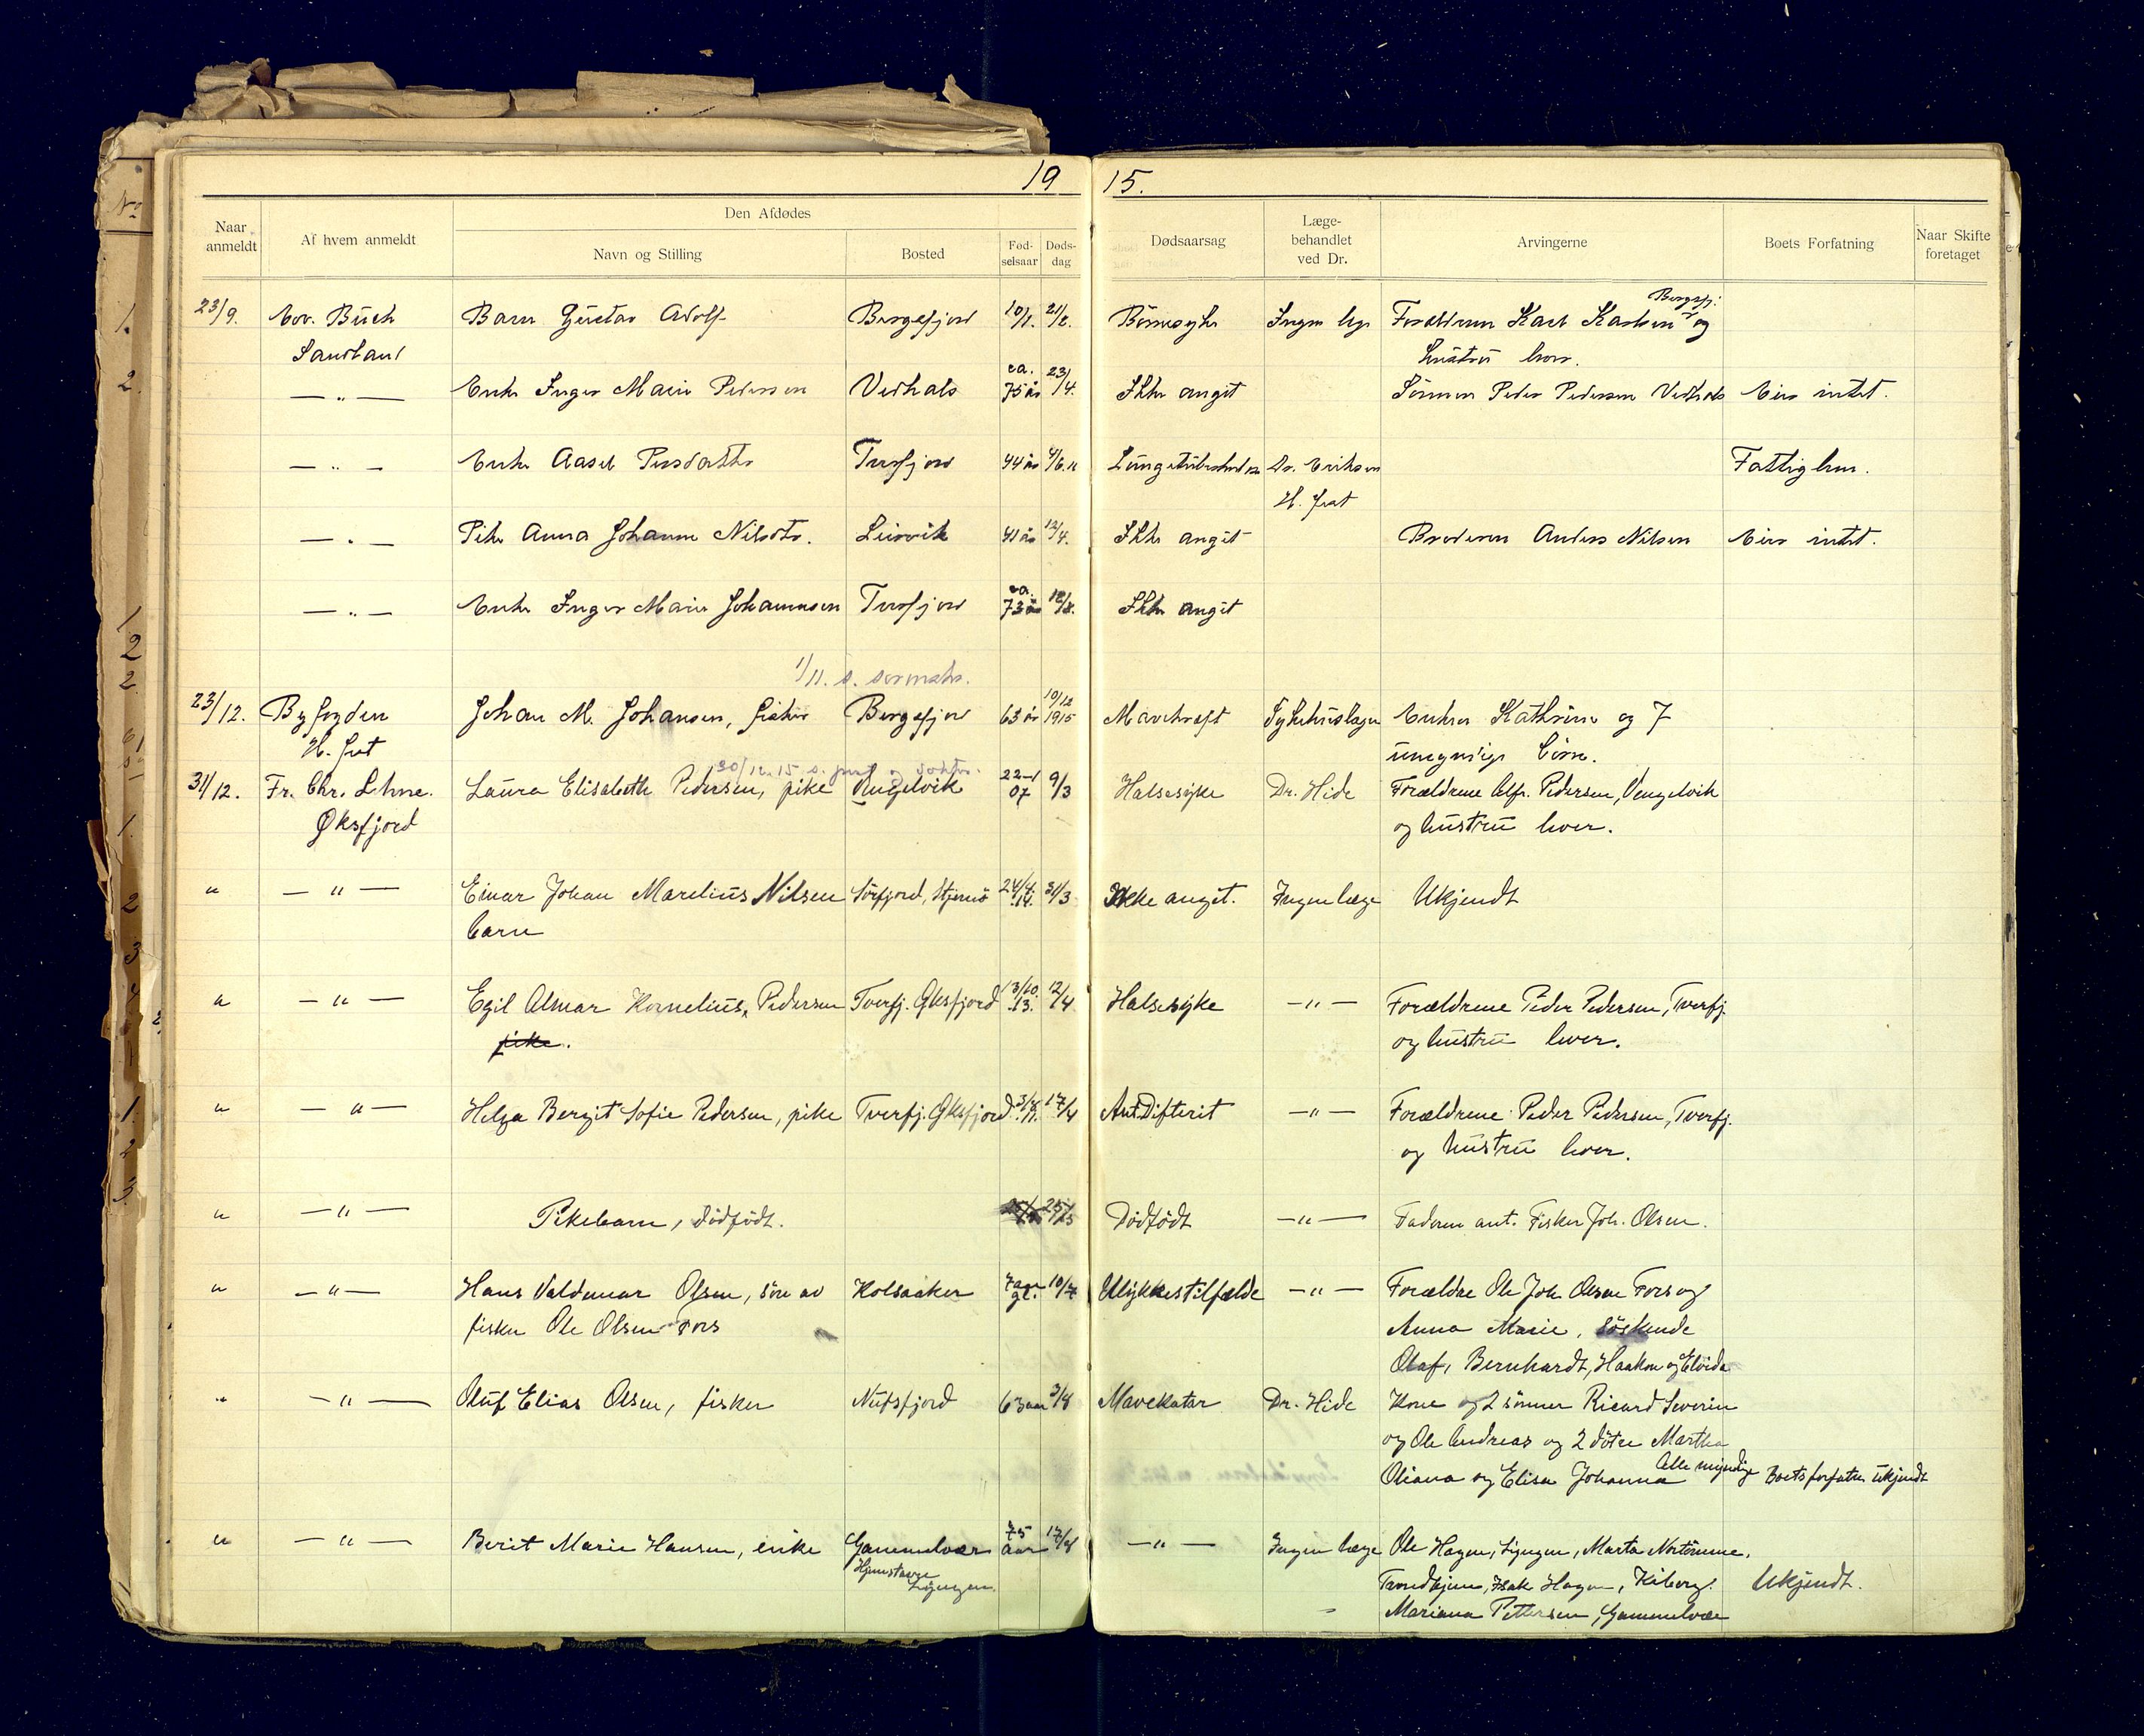 19 15.
Naar anmeldt
Af hvem anmeldt
Den Afdødes
Navn og Stilling
Bosted
Fød-selsaar
Døds-dag
Dødsaarsag
Læge-behandlet ved Dr.
Arvingerne
Boets Forfatning
Naar Skifte foretaget
23/9. Buch Barn Gustav Adolf Bergsfjord 10/1. 21/2. Ingen Forældrene Karl Karlsen Bergsfj: og
Sandland hustru
2. — " — Enke Inger Marie Pedersen Vedhals ca. 75 år 23/4. Ikke angit Sønnen Peder Pedersen Vedhals Eier intet.
— " — Enke Aasel Persdatter Tverfjord 44 år Lungetuberkulose Dr. Eriksen Fattiglem.
H. fest
— " — Pike Anna Johanne Nilsdtr. Lervik 41 år 12/4. Ikke angit Broderen Anders Nilsen Eier intet.
— " — Enke Inger Marie Johannesen Tverfjord ca. 73 år Ikke angit
1/11. s.
23/12. Byfogden Johan M. Johansen, fisker Bergsfjord 63 år 10/12 1915 Mavekræft Enken Kathrine og 7
H. fest umyndige børn.
30/12.15 s.
31/12. Fr. Chr. Lhne. Laura Elisabeth Pedersen, pike Vengelvik 22-1 07 9/3 Halsesyke Dr. Hide Forældrene Alfr. Pedersen, Vengelvik
Øksfjord og hustru lever.
" — " — Einar Johan Marelius Nilsen Sørfjord, Stjernø 24/4 .14. 31/3 Ikke angit. Ingen læge Ukjendt
barn
" — " — Egil Almar Kornelius, Pedersen Tverfj. Øksfjord 13/10 .13. 12/4 Halsesyke — " — Forældrene Peder Pedersen, Tverfj.
pike. og hustru lever.
" — " — Helga Bergit Sofie Pedersen, pike Tverfj. Øksfjord 3/8 .11. 17/4 Ant. Difterit — " — Forældrene Peder Pedersen, Tverfj.
og hustru lever.
" — " — Pikebarn, dødfødt. 25/5 Dødfødt — " — Faderen ant. Fisker Joh. Olsen.
" — " — Hans Valdemar Olsen, søn av Kolsaaker 7 aar gl. 10/7 Ulykkestilfælde — " — Forældre Ole Joh. Olsen Fors og
fisker Ole Olsen Fors Anna Marie, søskende
Olaf, Bernhardt, Haakon og Elvida
" — " — Oluf Elias Olsen, fisker Nufsfjord 63 aar 3/8 Mavekatar Dr. Hide Kone og 2 sønner Ricard Severin
og Ole Andreas og 2 døtre Martha
Oliana og Elisa Johanna Alle myndige Boets forfatn ukjendt
" — " — Berit Marie Hansen, enke Gammelvær 75 aar 17/8 — " — Ingen læge Ole Hagen, Lyngen, Marta Nertømme,
Hjemstavn Trondhjem, Isak Hagen, Kiberg. Ukjendt.
Lyngen. Mariana Pettersen, Gammelvær